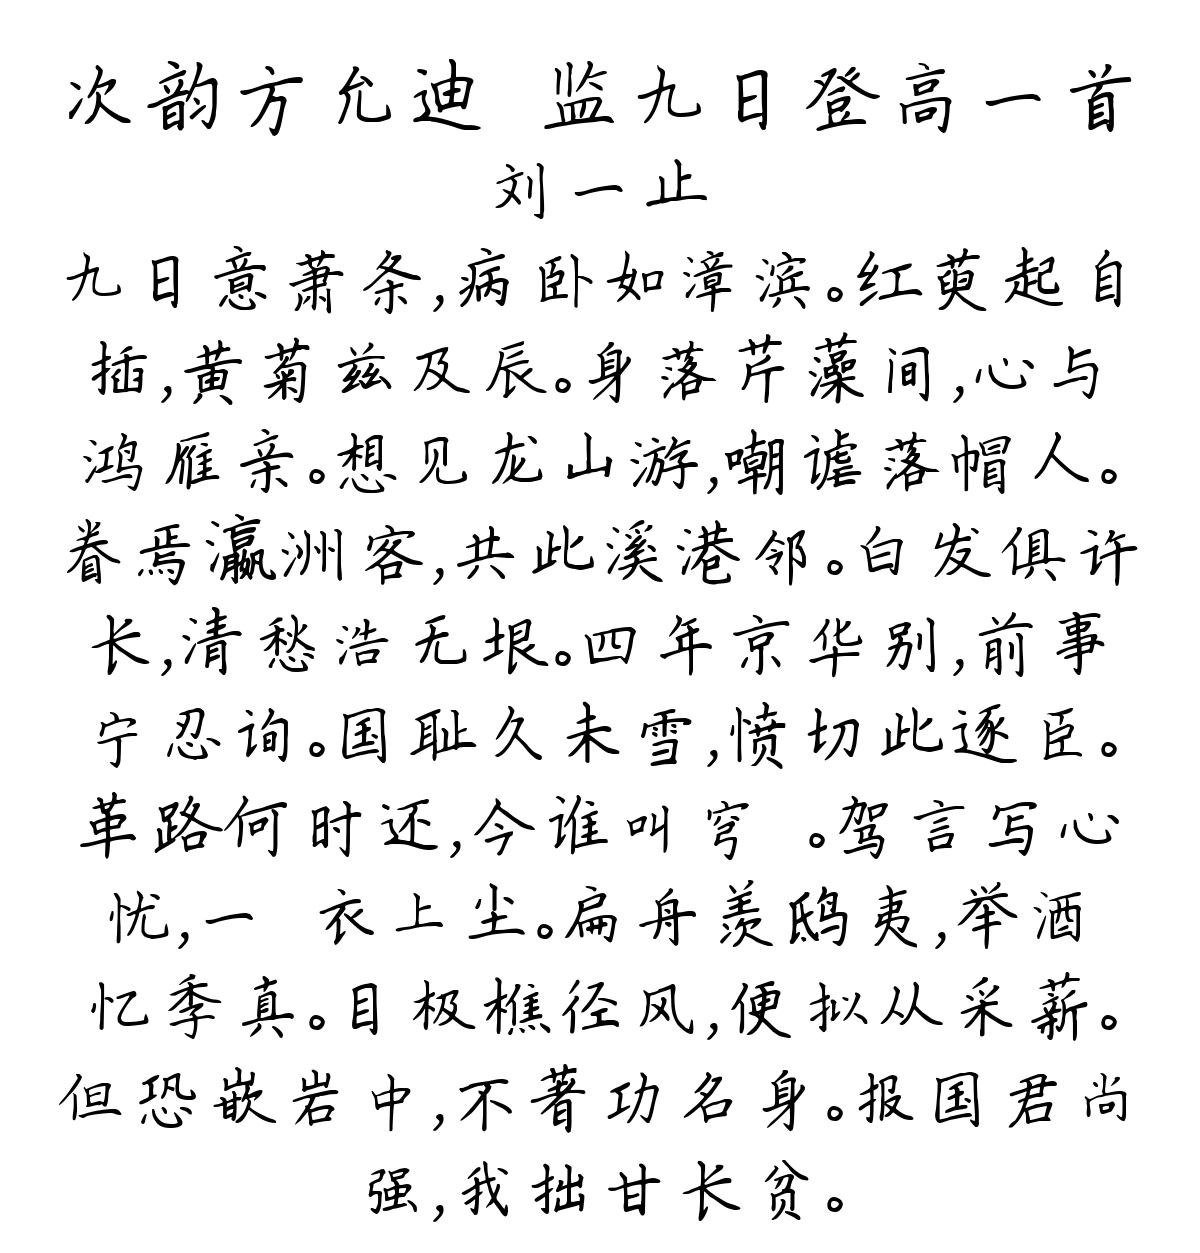 次韵方允迪 监九日登高一首
刘一止
九日意萧条,病卧如漳滨。红萸起自
插,黄菊兹及辰。身落芹藻间,心与
鸿雁亲。想见龙山游,嘲谑落帽人。
眷焉瀛洲客,共此溪港邻。白发俱许
长,清愁浩无垠。四年京华别,前事
宁忍询。国耻久未雪,愤切此逐臣。
革路何时还,今谁叫穹 。驾言写心
忧,一 衣上尘。扁舟羡鸱夷,举酒
忆季真。目极樵径风,便拟从采薪。
但恐嵌岩中,不著功名身。报国君尚
强,我拙甘长贫。